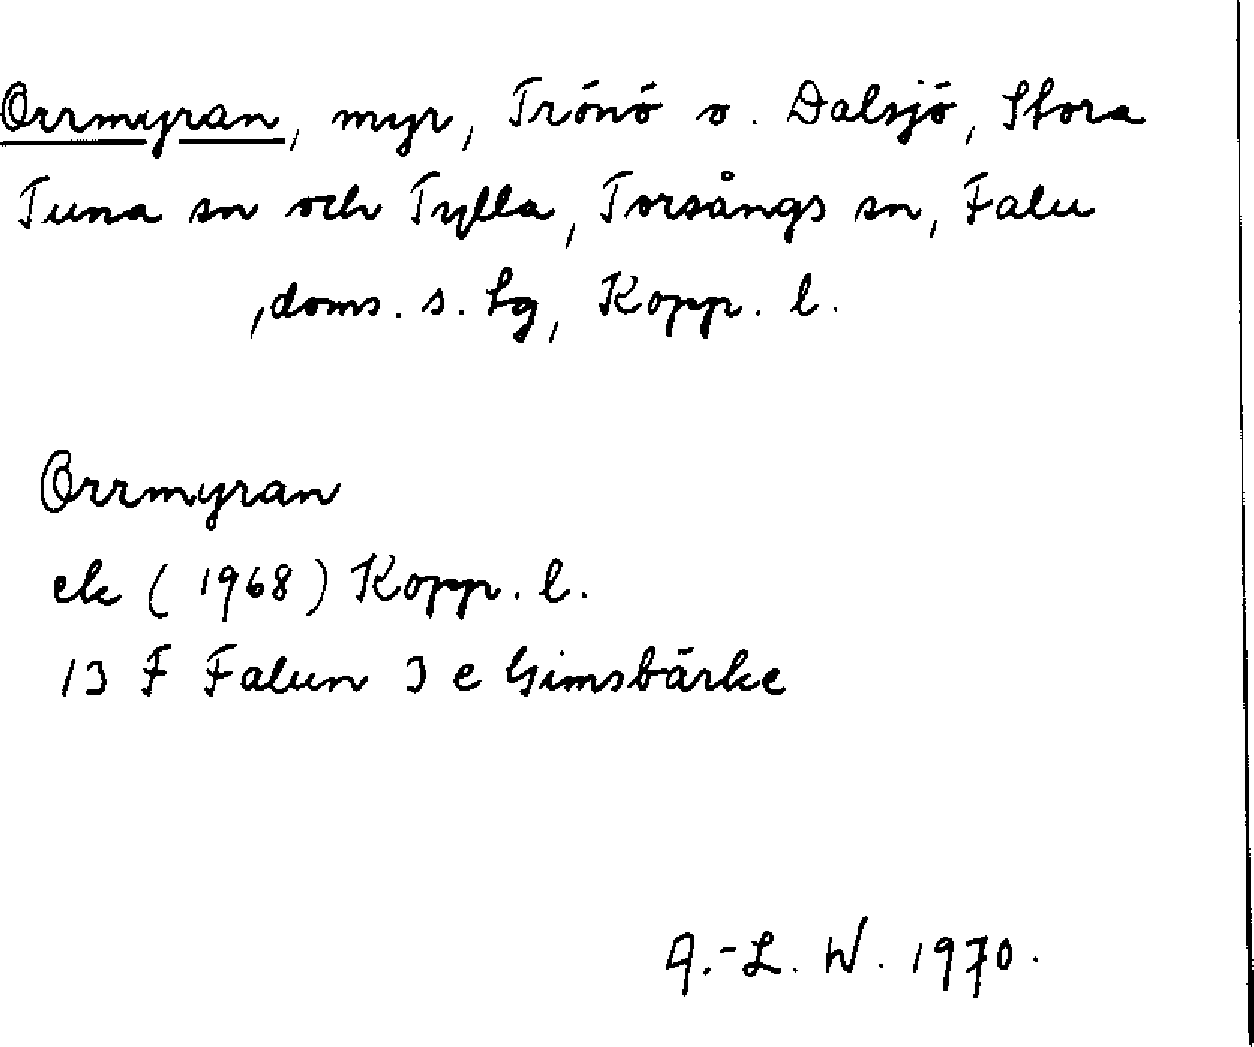 Orrmyran, myr, Trönö o. Dalsjö, Stora
Tuna sn och Tylla, Torsångs sn, Falu
, doms. s. tg, Kopp. l.
Orrmyran
ek (1968) Kopp. l.
13 F Falun 3 e Gimsbärke
A.-L. W. 1970.